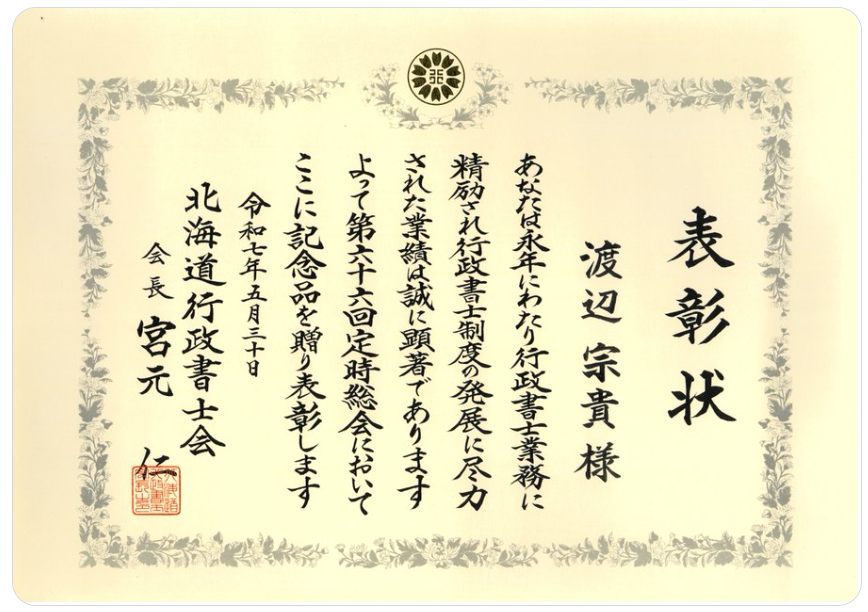 行
表彰状
渡辺宗貴様
あなたは永年にわたり行政書士業務に
精励され行政書士制度の発展に尽力
された業績は誠に顕著であります
よって第六十六回定時総会において
ここに記念品を贈り表彰します
令和七年五月三十日
北海道行政書士会
会長 宮元 仁